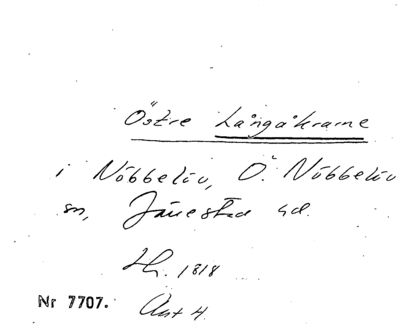 Östre Långåkrarne
i Nöbbelöv, Ö. Nöbbelöv
sn, Järrestad hd.
Lh. 1818
Nr 7707. Akt 4